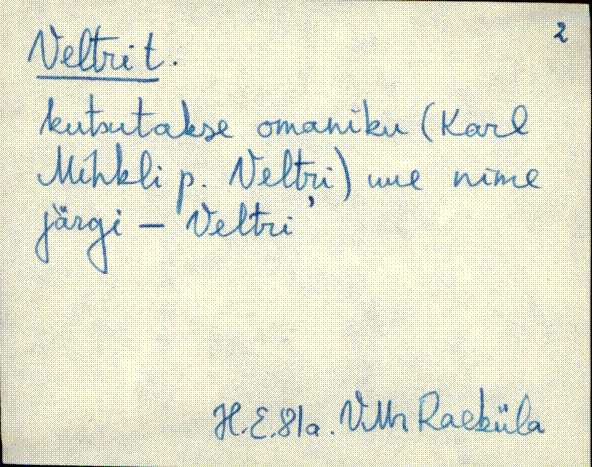 2
Veltri t.
kutsutakse omaniku (Karl
Mihkli p. Veltri) uue nime
järgi – Veltri'
H.E. 81a. VMr Raeküla